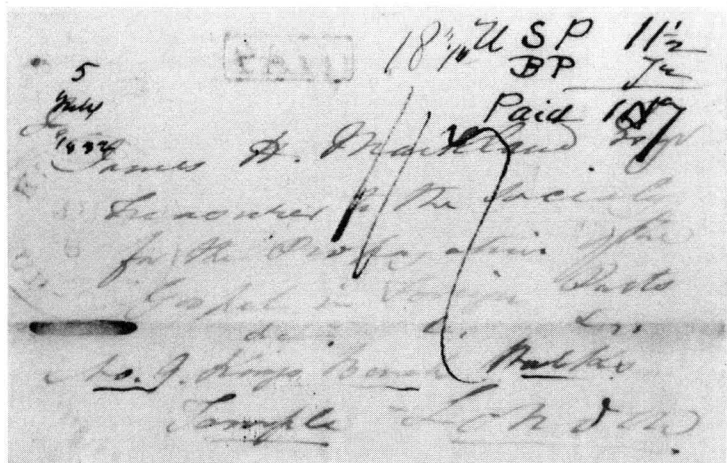 18 3/4 U S P 11½
BP 7½
5
July
Paid
James H. Markland Esqr
Treasurer to the Society
for the Propagation of the
Gospel in Foreign Parts
No. 9. Kings Bench Walks
Temple London